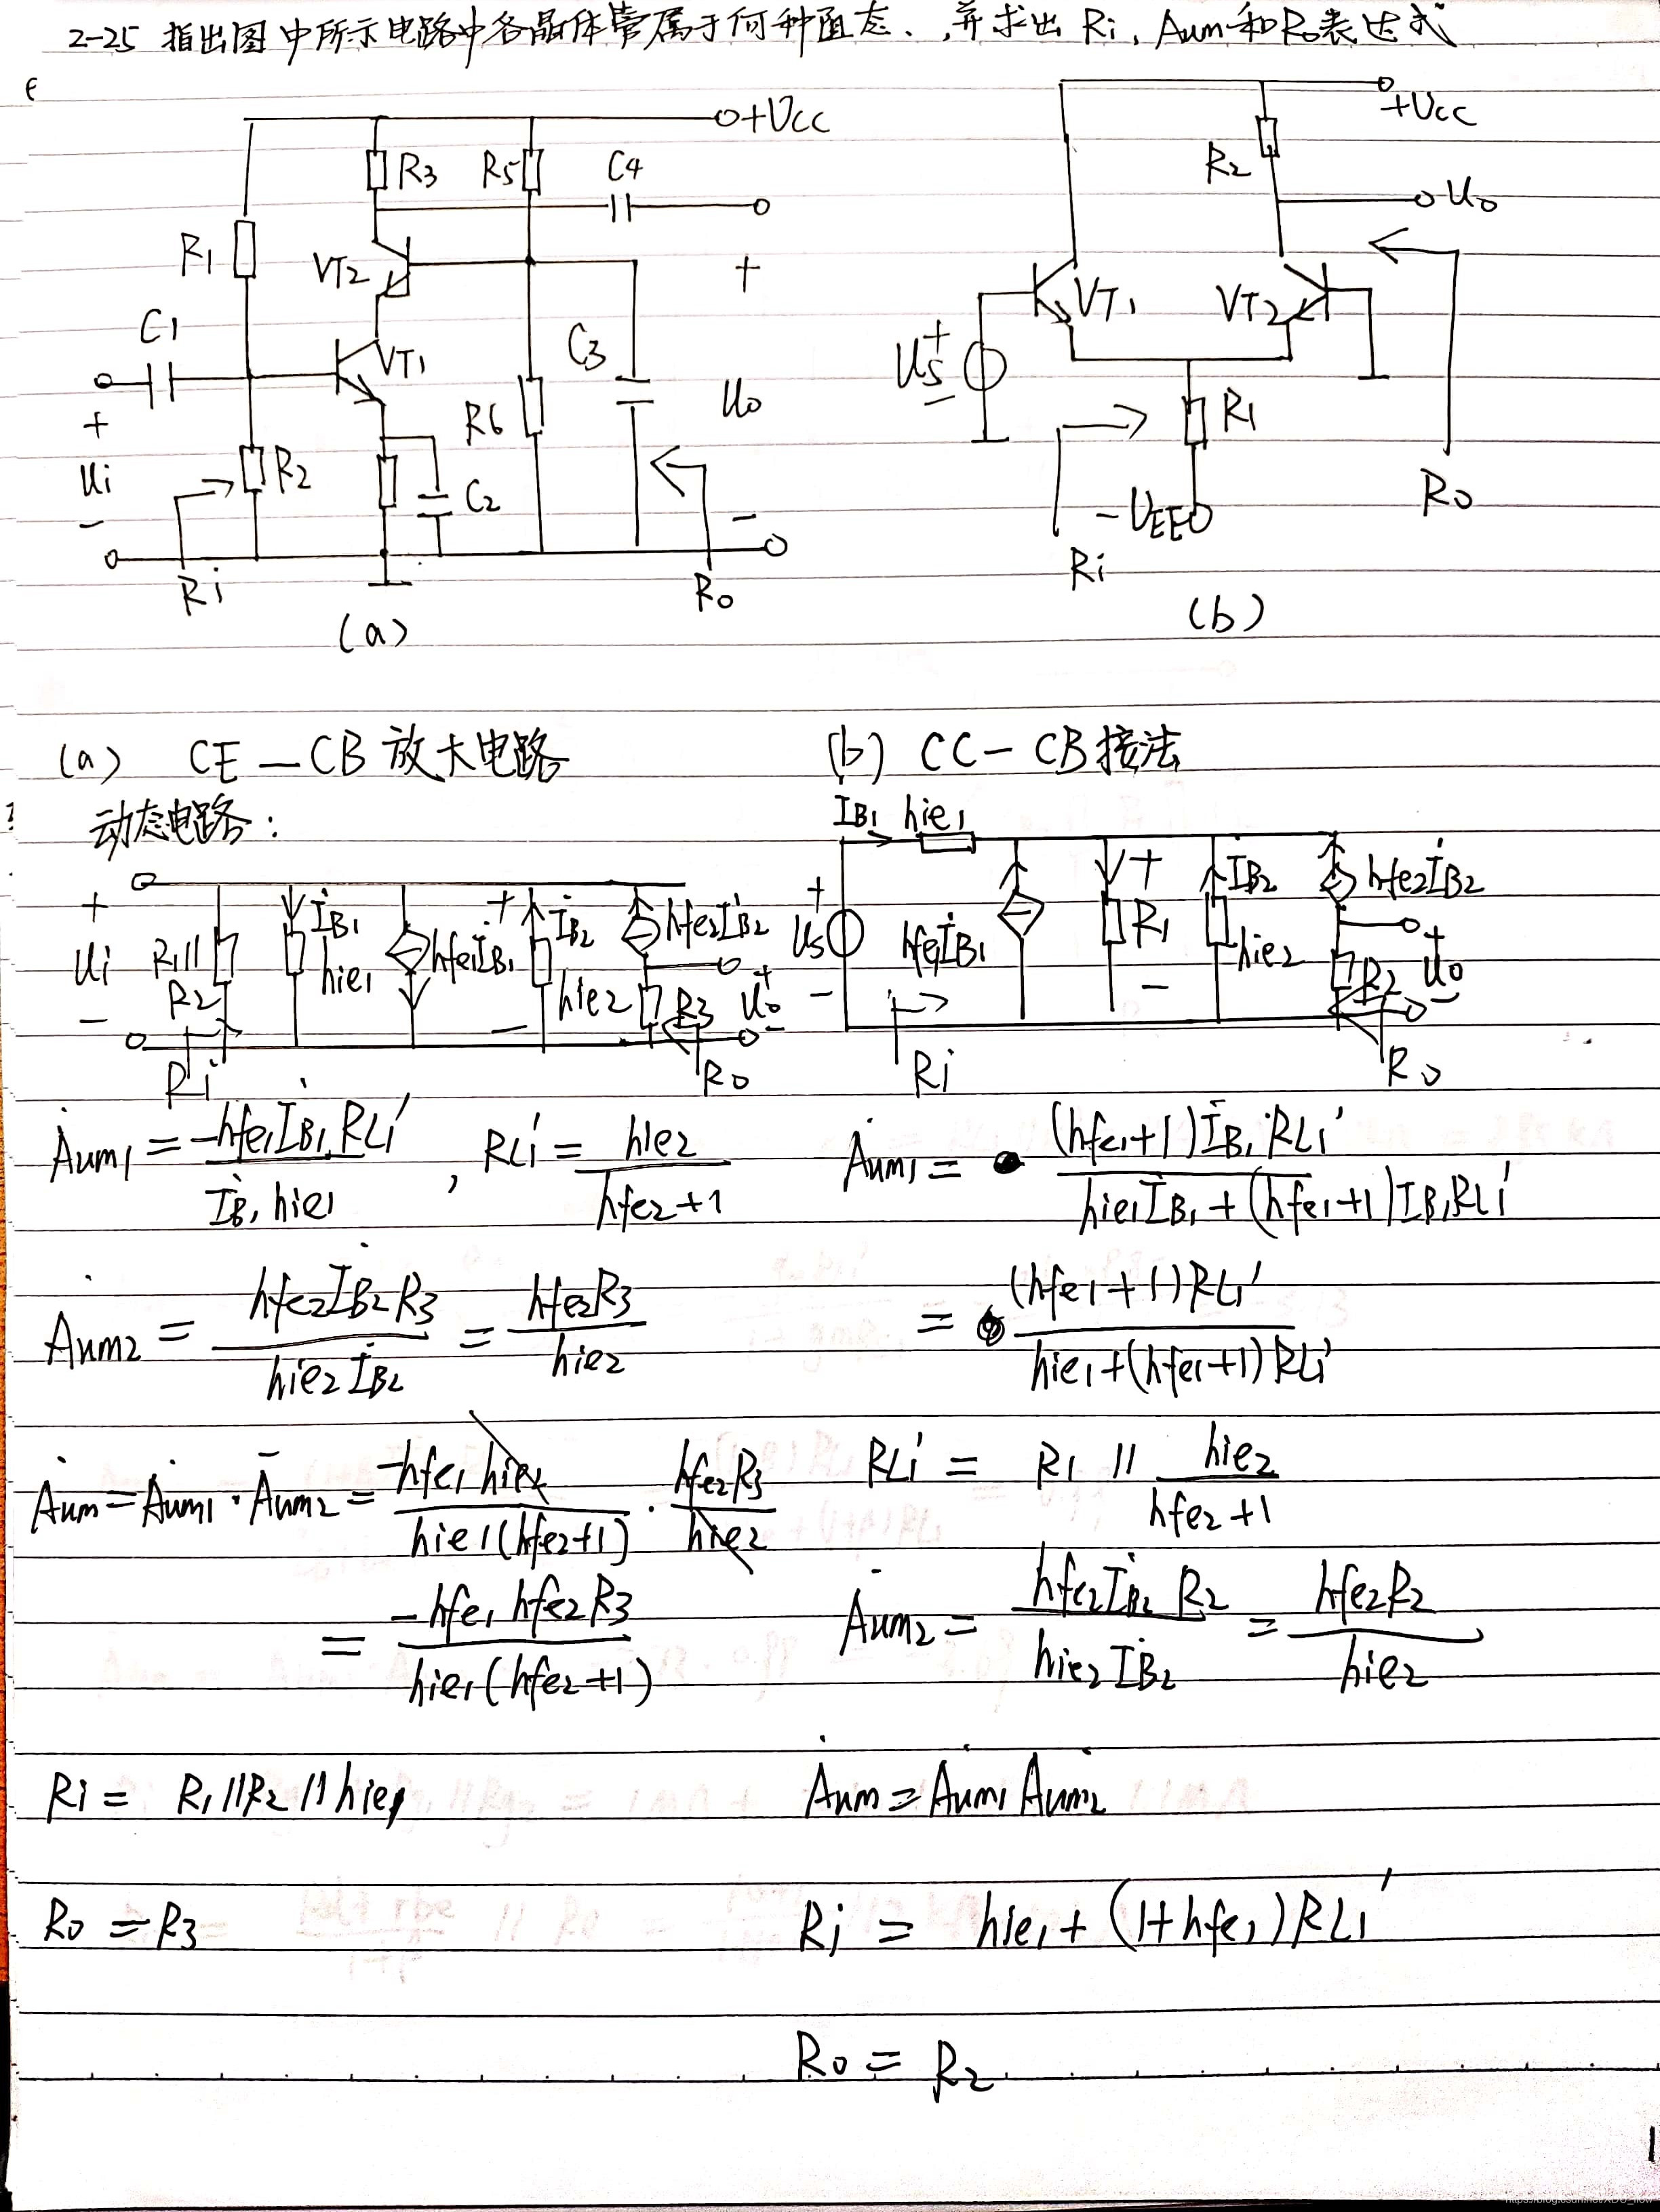 2-25 指出图中所示电路中各晶体管属于何种组态、,并求出 Ri, Aum和Ro表达式
+Vcc
R3 R5 C4
R1
VT2
+
C1
VT1
C3
R6
Uo
+
Ui
-
R2
C2
-
Ri
Ro
(a)
+Vcc
R2
Uo
VT1 VT2
Us
+
-
R1
-VEE
Ri
Ro
(b)
(a) CE-CB 放大电路
动态电路:
+
Ui
-
R1//
R2
İB1
hie1
hfeİB1
+
-
İB2
hie2
hfe2İB2
R3
+
Uo
-
Ri
Ro
Aum1 = -hfe1İB1RL1' / İB1hie1 , RL1' = hie2 / hfe2+1
Aum2 = hfe2İB2R3 / hie2İB2 = hfe2R3 / hie2
Aum = Aum1·Aum2 = -hfe1hie2 / hie1(hfe2+1) · hfe2R3 / hie2
= -hfe1hfe2R3 / hie1(hfe2+1)
Ri = R1//R2//hie1
Ro = R3
(b) CC-CB接法
IB1 hie1
+
Us
-
hfe1İB1
+
R1
-
İB2
hie2
hfe2İB2
R2
+
Uo
-
Ri
Ro
Aum1 = (hfe1+1)İB1RL1' / hie1İB1+(hfe1+1)IB1RL1'
= (hfe1+1)RL1' / hie1+(hfe1+1)RL1'
RL1' = R1 // hie2 / hfe2+1
Aum2 = hfe2İB2R2 / hie2İB2 = hfe2R2 / hie2
Aum = Aum1Aum2
Ri = hie1+(1+hfe1)RL1'
Ro = R2